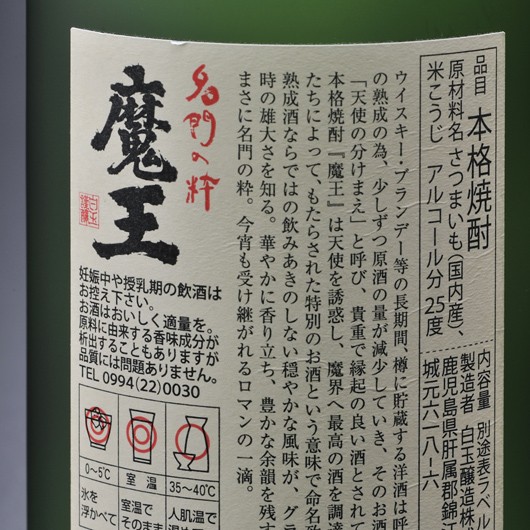 品目 本格焼酎
原材料名 さつまいも(国内産)、
米こうじ アルコール分 25度
内容量 別途表ラベル
製造者 白玉醸造株
鹿児島県肝属郡錦
城元六一八ー六
ウイスキー・ブランデー等の長期間、樽に貯蔵する洋酒は呼
の熟成の為、少しずつ原酒の量が減少していき、そのお酒
「天使の分けまえ」と呼び、貴重で縁起の良い酒とされて
本格焼酎『魔王』は天使を誘惑し、魔界へ最高の酒を調達
たちによって、もたらされた特別のお酒という意味で命名致
熟成酒ならではの飲みあきのしない穏やかな風味が、グラ
時の雄大さを知る。華やかに香り立ち、豊かな余韻を残す
まさに名門の粋。今宵も受け継がれるロマンの一滴。
名門の粋
魔王
妊娠中や授乳期の飲酒は
お控え下さい。
お酒はおいしく適量を。
原料に由来する香味成分が
析出することもありますが
品質には問題ありません。
TEL 0994(22)0030
0〜5℃
室温
35〜40℃
氷を
浮かべて
室温で
そのまま
人肌温で